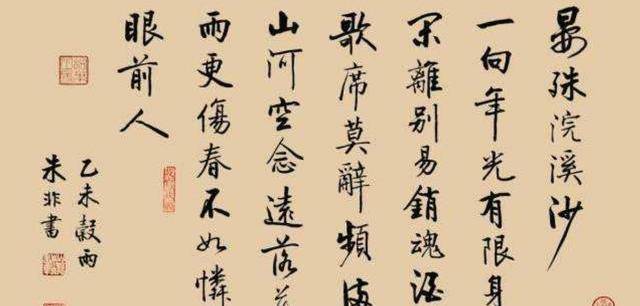 晏殊浣溪沙
一向年光有限身
閑離別易銷魂酒
歌席莫辭頻滿
山河空念遠落花
雨更傷春不如憐
眼前人
乙未穀雨
朱非書